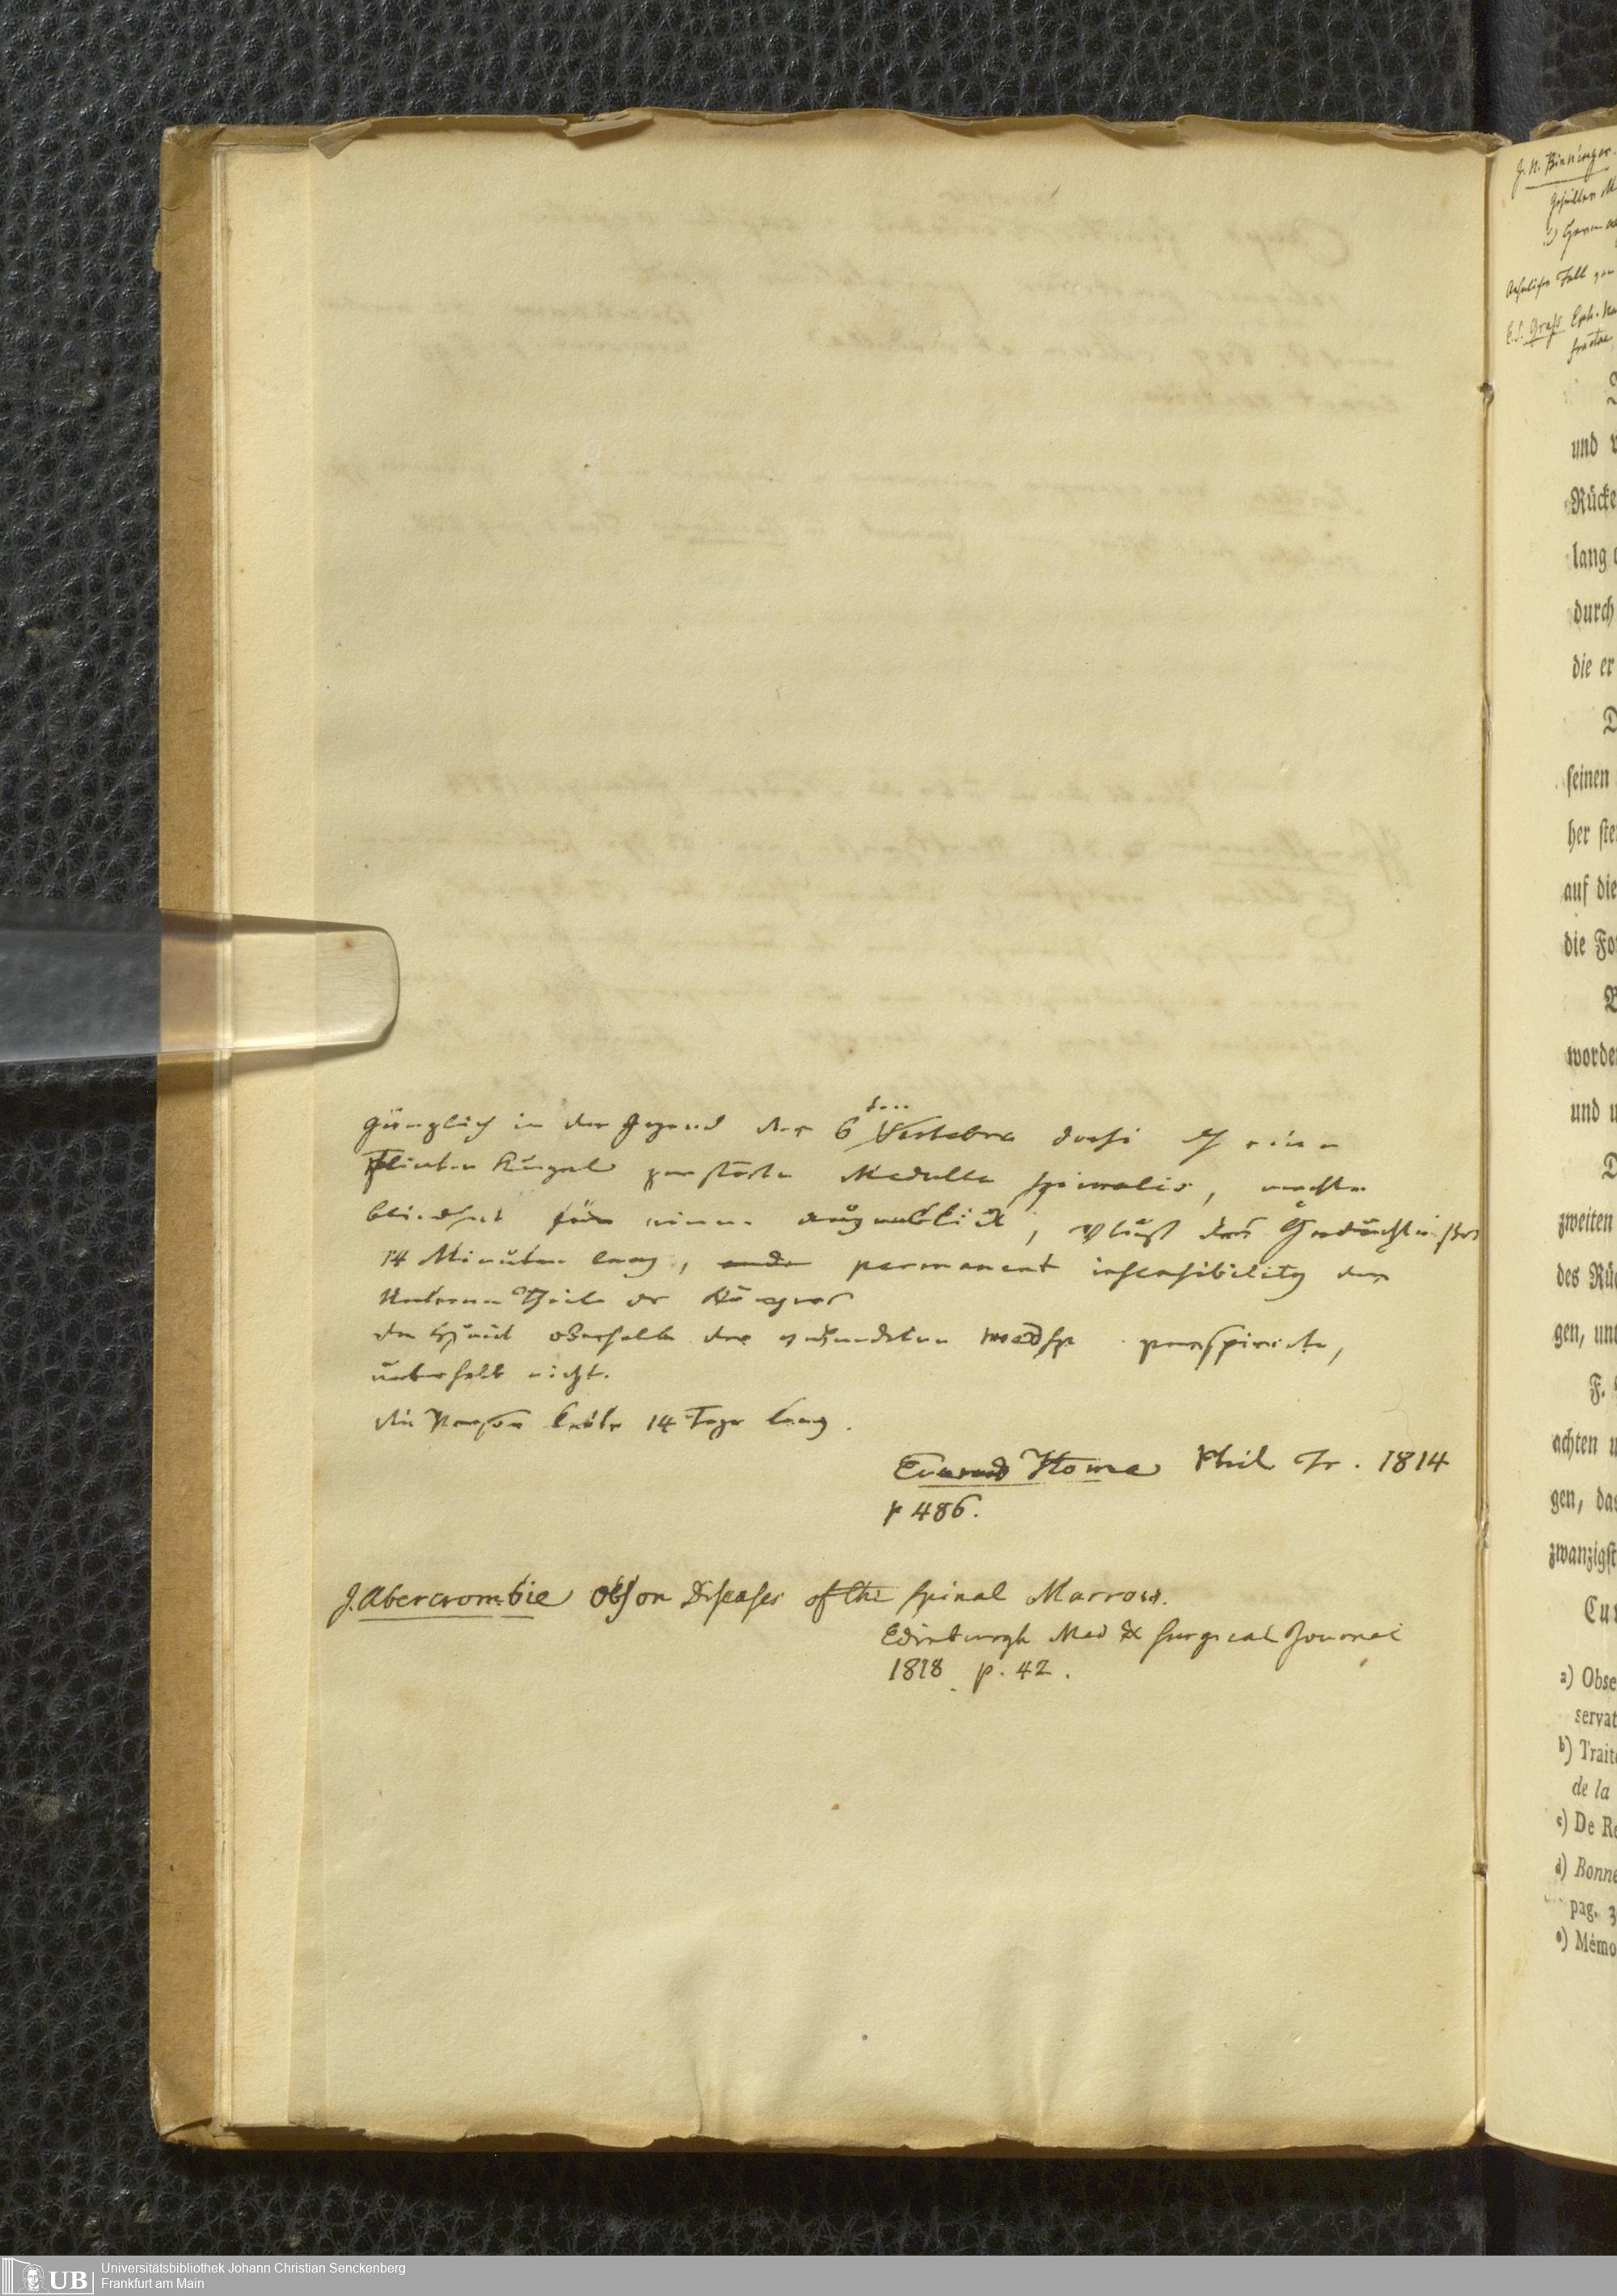 gänzlich in der Gegend der 6 Vertebra dorsi d eine
Flinten Kugel zerstörte Medulla spinalis, machte
blindheit für einen augenblick, Verlust des Gedächtnißes
14 Minuten lang, permanent insensibility des
Unteren Theils des Körpers
die Haut oberhalb der verwundeten med sp perspirirte,
unterhalb nicht.
die Person lebte 14 Tage lang.
Everard Home Phil Tr. 1814
p 486.
J. Abercrombie Obs on Diseases of the spinal Marrow.
Edinburgh Med & Surgical Journal
1818 p. 42.
J. N. Binninger.
Aehnlicher Fall von
E.S. Graß Eph. Na
fractae
und v
Rücke
lang
durch
die er
D
seinen
her ste
auf die
die Fo
worde
und u
D
zweiten
des Rü
gen, un
F.
achten u
gen, das
zwanzigst
Cu
a) Obse
servat
b) Trait
de la
c) De Re
d) Bonne
pag. 3
e) Mémo
UB Universitätsbibliothek Johann Christian Senckenberg
Frankfurt am Main